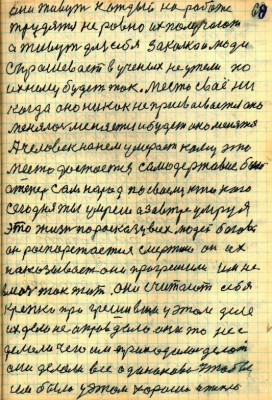 они живут каждый на работе
трудятя не ровно их полагают
а живут для себя законкои люди
спрашевает в ученых не
их нему будет так. место сваё ни
когда оно никак не присваевается оно
менялос меняется и будет оно менятся
А человек на нем умирает кому это
место достается самодержавие было
а тепер сам народ по своему кто кого
сегодня ты умреш а завтра умру я
это жизн такая людей богова
он распоряжается смертию он их
наказывает они прогрешили им не
так жит они считают себя
крепко при грешивши у этом деле
их дело не а прав дело оны то не с
делали чего им приходилос делат
они делали все одинаково чтобы
им было у этом хорошо а жило